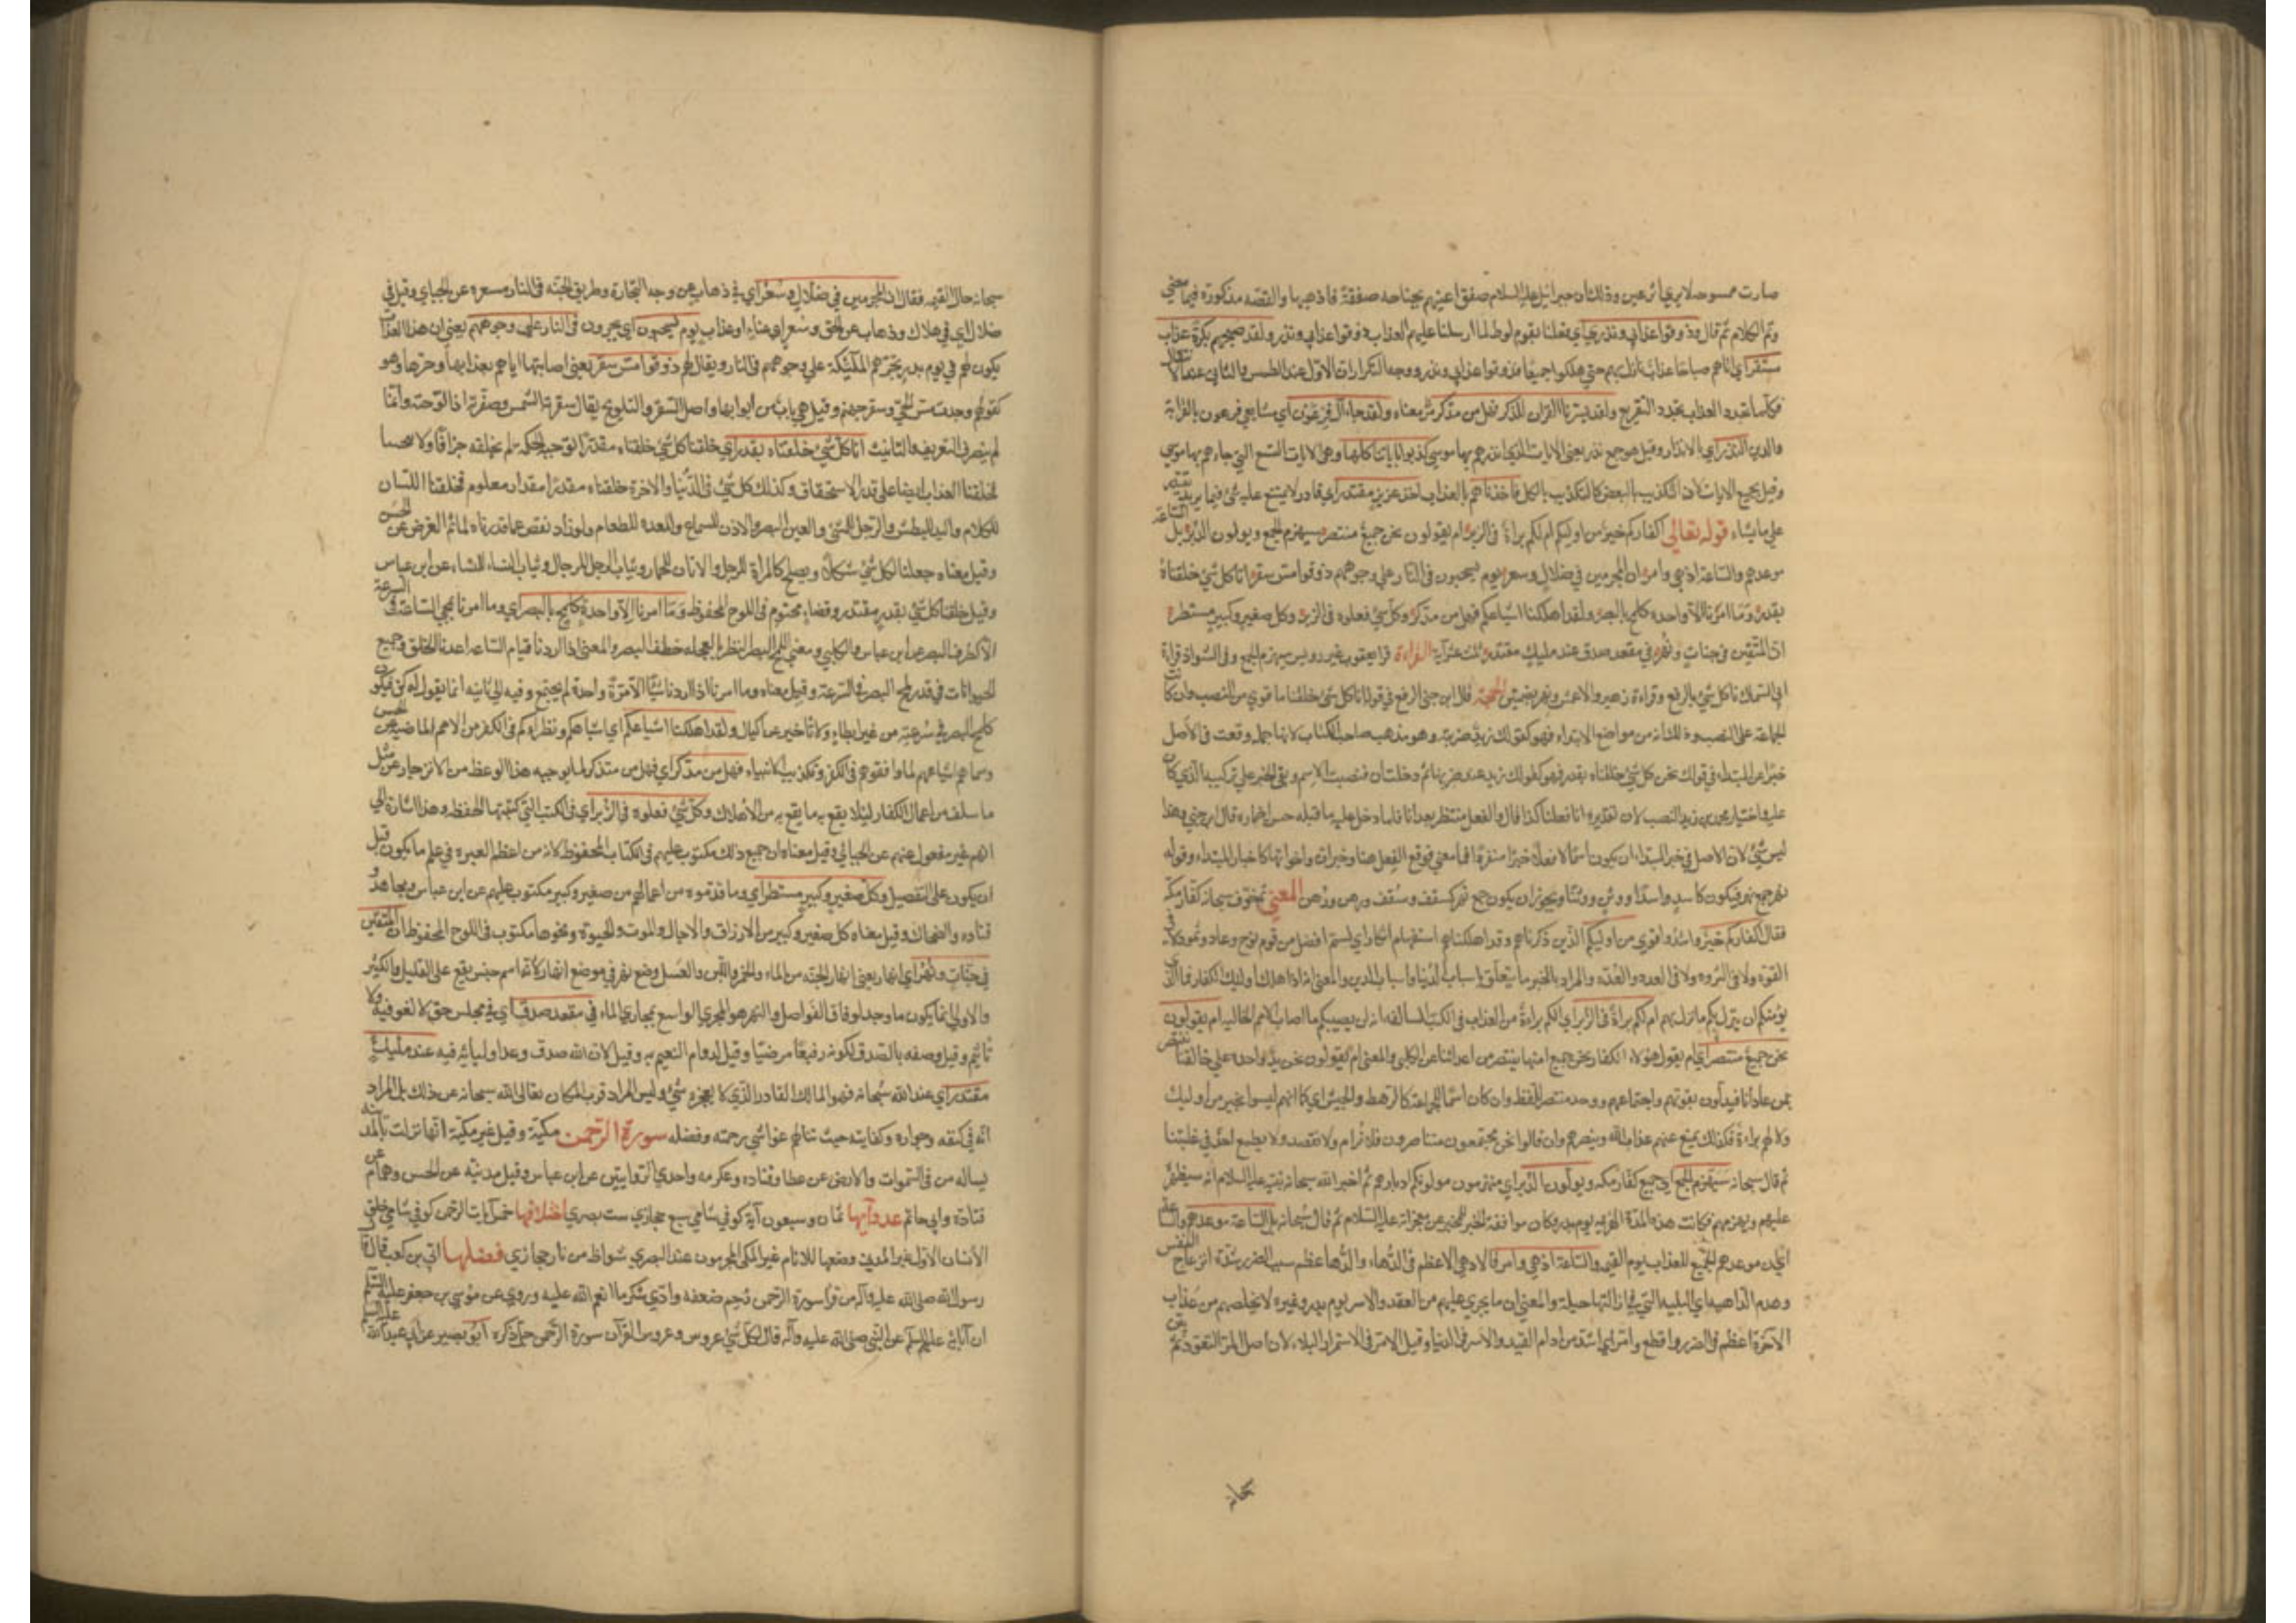 صارت ممسوحة لا يرى اثر عين وذلك ان جبرائيل عليه السلام صفق اعينهم بجناحه صفقة فاذهبها والقصه مذكورة فيما مضي
وتم الكلام ثم قال فذوقوا عذابي ونذري اي فقلنا لقوم لوط لما ارسلنا عليهم العذاب ذوقوا عذابي ونذر ولقد صبحهم بكرة عذاب
مستقر اي اتاهم صباحا عذاب نازل بهم حتي هلكوا جميعا فذوقوا عذابي ونذر ووجه التكرار ان الاول عند الطمس والثاني عند الائتفاك
فكلما تجدد العذاب تجدد التقريع ولقد يسرنا القران للذكر فهل من مدكر مر معناه ولقد جاء آل فرعون اي متابعي فرعون بالقرابة
والدين النذر اي الانذار وقيل هو جمع نذير يعني الايات التي انذرهم بها موسي كذبوا باياتنا كلها وهي الايات التسع التي جاءهم بها موسي
وقيل بجميع الايات لان التكذيب بالبعض كالتكذيب بالكل فاخذناهم بالعذاب اخذ عزيز مقتدر اي قادر لا يمتنع عليه شئ فيما يريده
علي ما يشاء قوله تعالي اكفاركم خير من اوليكم ام لكم براءة في الزبر ام يقولون نحن جميع منتصر سيهزم الجمع ويولون الدبر بل الساعة
موعدهم والساعة ادهي وامر ان المجرمين في ضلال وسعر يوم يسحبون في النار علي وجوههم ذوقوا مس سقر انا كل شئ خلقناه
بقدر وما امرنا الا واحدة كلمح بالبصر ولقد اهلكنا اشياعكم فهل من مدكر وكل شئ فعلوه في الزبر وكل صغير وكبير مستطر
ان المتقين في جنات ونهر في مقعد صدق عند مليك مقتدر ثلث عشر آية القراءة قرا يعقوب غير رويس سيهزم الجمع وفي الشواذ قراءة
ابي السمال انا كل شئ بالرفع وقراءة زهير والاعمش ونهر بضمتين الحجة قال ابن جني الرفع في قوله انا كل شئ خلقناه اقوي من النصب وان كانت
الجماعة علي النصب وذلك انه من مواضع الابتداء فهو كقولك زيد ضربته وهو مذهب صاحب الكتاب لانها جملة وقعت في الاصل
خبرا عن المبتداء في قولك نحن كل شئ خلقناه بقدر فهو كقولك زيد هند ضربها ثم دخلت ان فنصبت الاسم وبقي الخبر علي تركيبه الذي كان
عليه واختيار محمد بن يزيد النصب لان تقديره انا فعلنا كذا قال والفعل منتظر بعد انا فلما دخل عليه ما قبله حسن اضماره قال ابن جني وهذا
ليس بشئ لان الاصل في خبر المبتداء ان يكون اسما لا فعلا خبرا منفردا فما معني توقع الفعل هنا وخبر ان واخواتها كاخبار المبتداء وقوله
نهر جمع نهر فيكون كاسد واسد ووثن ووثن ويجوز ان يكون جمع نهر كسقف وسقف ورهن ورهن المعني ثم خوف سبحانه كفار مكة
فقال اكفاركم خير واشد واقوي من اوليكم الذين ذكرناهم وقد اهلكناهم استفهام انكار اي ليسم افضل من قوم نوح وعاد وثمود لا في
القوة ولا في الثروه ولا في العدد والعدة والمراد بالخير ما يتعلق باسباب الدنيا واسباب الدين والمعني انه اذا هلك اوليك الكفار فما الذي
يؤمنكم ان ينزل بكم ما نزل بهم ام لكم براءة في الزبر اي الكم براءة من العذاب في الكتب السالفة انه لن يصيبكم ما اصاب الامم الخالية ام يقولون
نحن جميع منتصر اي ام يقول هؤلاء الكفار نحن جميع امرنا ننتصر من اعدائنا عن الكلبي والمعني ام يقولون نحن يد واحدة علي خالفنا ننتصر
ممن عادانا فيدلون بقوتهم واجتماعهم ووحد منتصر للفظ وان كان اسما للجماعة كالرهط والجيش اي كما انهم ليسوا بخير من اوليك
ولا لهم براءة فكذلك لا يمنع عنهم عذاب الله وينصرهم وان قالوا نحن مجتمعون متناصرون فلا نرام ولا نقصد ولا يطمع احد في غلبتنا
ثم قال سبحانه سيهزم الجمع اي جميع كفار مكة ويولون الدبر اي منهزمون مولونكم ادبارهم ثم اخبر الله سبحانه نبيه عليه السلام انه سيظهره
عليهم ويهزمهم فكانت هذه الهزيمة يوم بدر وكان موافقة الخبر للمخبر من معجزاته عليه السلام ثم قال سبحانه بل الساعة موعدهم والساعة
اي ان موعدهم الجميع للعذاب يوم القيمة والساعة ادهي وامر فالادهي الاعظم في الدهاء والدهاء عظم سبب الضرر شدة انزعاج النفس
وهو من الداهية اي البلية التي في ازالتها حيلة والمعني ان ما يجري عليهم من القتل والاسر يوم بدر وغيره لا يخلصهم من عذاب
الآخرة اعظم في الضرر واقطع وامر اي اشد مرارة من القتل والاسر في الدنيا وقيل الامر في الاستمرار البلاء لان اصل المر النفوذ ثم
سبحانه
سبحانه حال القيمة فقال ان المجرمين في ضلال وسعر اي في ذهاب عن وجه النجاة وطريق الجنة في النار مسعرة عن الجبائي وقيل في
ضلال اي في هلاك وذهاب عن الحق وسعر اي عناء وعذاب يوم يسحبون اي يجرون في النار علي وجوههم يعني ان هذا العذاب
يكون لهم في يوم يجرهم الملئكة علي وجوههم في النار ويقال لهم ذوقوا مس سقر يعني اصابتها اياهم بعذابها وحرها وهو
كقولهم وجدت مس الحمي وسقر جهنم وقيل هي باب من ابوابها واصل السقر والتلويح يقال سقرته الشمس وصقرته اذا لوحته وانما
لم ينصرف للتعريف والتانيث انا كل شئ خلقناه بقدر اي خلقنا كل شئ خلقناه مقدرا توجبه الحكمة لم نخلقه جزافا ولا تبخيتا
فخلقنا العذاب ايضا علي قدر الاستحقاق وكذلك كل شئ في الدنيا والاخرة خلقناه مقدرا بمقدار معلوم فخلقنا اللسان
للكلام واليد للبطش والرجل للمشي والعين للبصر والاذن للسماع والمعدة للطعام ولو زاد او نقص عما قدرناه لما تم الغرض عن الحسن
وقيل معناه جعلنا لكل شئ شكلا يوافقه ويصلح كالمراة للرجل والاتان للحمار وثياب الرجل للرجال وثياب النساء للنساء عن ابن عباس
وقيل خلقنا كل شئ بقدر مقتدر وقضاء محتوم في اللوح المحفوظ وما امرنا الا واحدة كلمح بالبصر اي وما امرنا بمجي الساعة في السرعة
الا كطرف البصر عن ابن عباس والكلبي ومعني اللمح النظر بالعجلة خطف البصر والمعني اذا اردنا قيام الساعة اعدنا الخلق وجميع
الحيوانات في قدر لمح البصر في السرعة وقيل معناه وما امرنا اذا اردنا شيئا الا مرة واحدة لم يحتج فيه الي ثانية انما نقول له كن فيكون
كلمح البصر في سرعته من غير ابطاء ولا تاخير عن الجبائي ولقد اهلكنا اشياعكم اي اشباهكم ونظراءكم في الكفر من الامم الماضية عن الحسن
وسماهم اشياعهم لما وافقوهم في الكفر وتكذيب الانبياء فهل من مدكر اي فهل من متذكر لما يوجبه هذا الوعظ من الانزجار عن مثل
ما سلف من اعمال الكفار لئلا يقع به ما وقع بهم من الاهلاك وكل شئ فعلوه في الزبر اي في الكتب التي كتبتها الحفظة وهذا اشارة الي
انهم غير مغفول عنهم عن الجبائي وقيل معناه ان جميع ذلك مكتوب عليهم في الكتاب المحفوظ لانه من اعظم العبرة في علم ما يكون قبل
ان يكون علي التفصيل وكل صغير وكبير مستطر اي وما قدموه من اعمالهم من صغير وكبير مكتوب عليهم عن ابن عباس ومجاهد و
قتادة والضحاك وقيل معناه كل صغير وكبير من الارزاق والآجال والموت والحيوة ونحوها مكتوب في اللوح المحفوظ ان المتقين
في جنات ونهر اي انهار يعني انهار الجنة من الماء والخمر واللبن والعسل وضع نهر في موضع انهار لانه اسم جنس يقع علي القليل والكثير
والاولي انما يكون ما وحد لوفاق الفواصل والنهر هو المجري الواسع بمجاري الماء في مقعد صدق اي في مجلس حق لا لغو فيه ولا
تاثيم وقيل وصفه بالصدق لكونه رفيعا مرضيا وقيل لدوام النعيم به وقيل لان الله صدق وعد اوليائه فيه عند مليك
مقتدر اي عند الله سبحانه فهو المالك القادر الذي لا يعجزه شئ وليس المراد قرب المكان تعالي الله سبحانه عن ذلك بل المراد
انه في كنفه وجواره وكفايته حيث تنالهم غواشي رحمته وفضله سورة الرحمن مكية وقيل غير مكية انها نزلت بالمدينة
يساله من في السموات والارض عن عطا وقتادة وعكرمه واحدي الروايتين عن ابن عباس وقيل مدنية عن الحسن وهمام عن
قتادة وابي حاتم عدد آيها ثمان وسبعون آية كوفي شامي سبع حجازي ست بصري اختلافها خمس آيات الرحمن كوفي شامي خلق
الانسان الاول غير المدني وضعها للانام غير المكي المجرمون عند البصري شواظ من نار حجازي فضلها ابي بن كعب قال قال
رسول الله صلي الله عليه وآله من قرا سورة الرحمن رحم ضعفه وادي شكر ما انعم الله عليه وروي عن موسي بن جعفر عليه السلم
عن آبائه عليهم السلم عن النبي صلي الله عليه وآله قال لكل شئ عروس وعروس القرآن سورة الرحمن جل ذكره ابو بصير عن ابي عبد الله عليه السلم